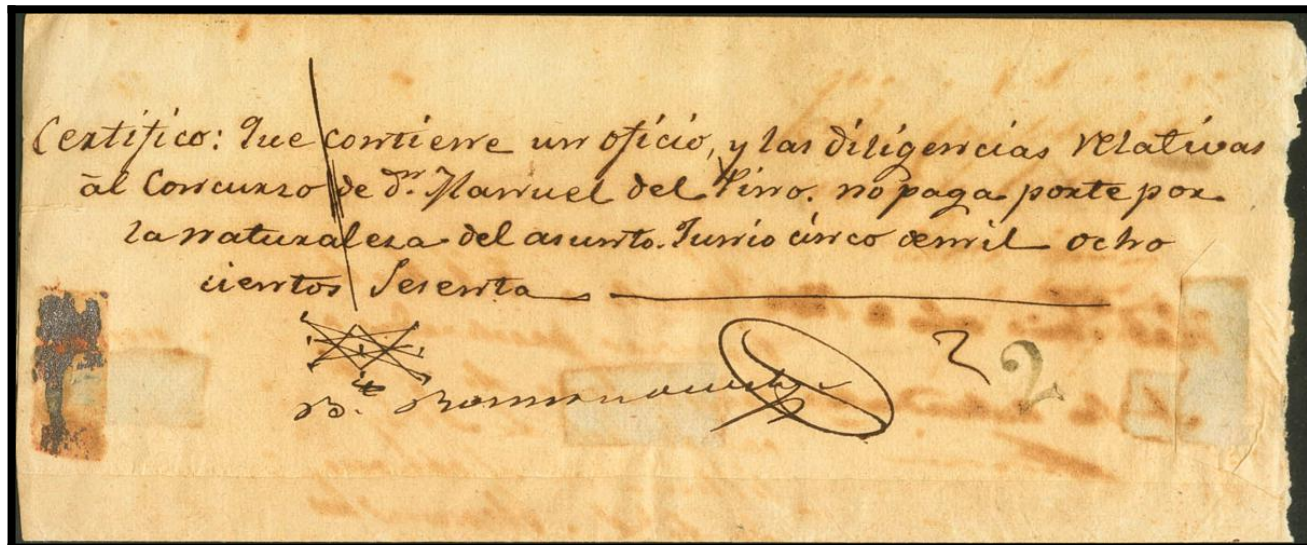 Certifico: Que contiene un oficio, y las diligencias relativas
al Concurso de Dn. Manuel del Pino. no paga porte por
la naturaleza del asunto. Junio cinco de mil ocho
cientos Sesenta
2
2